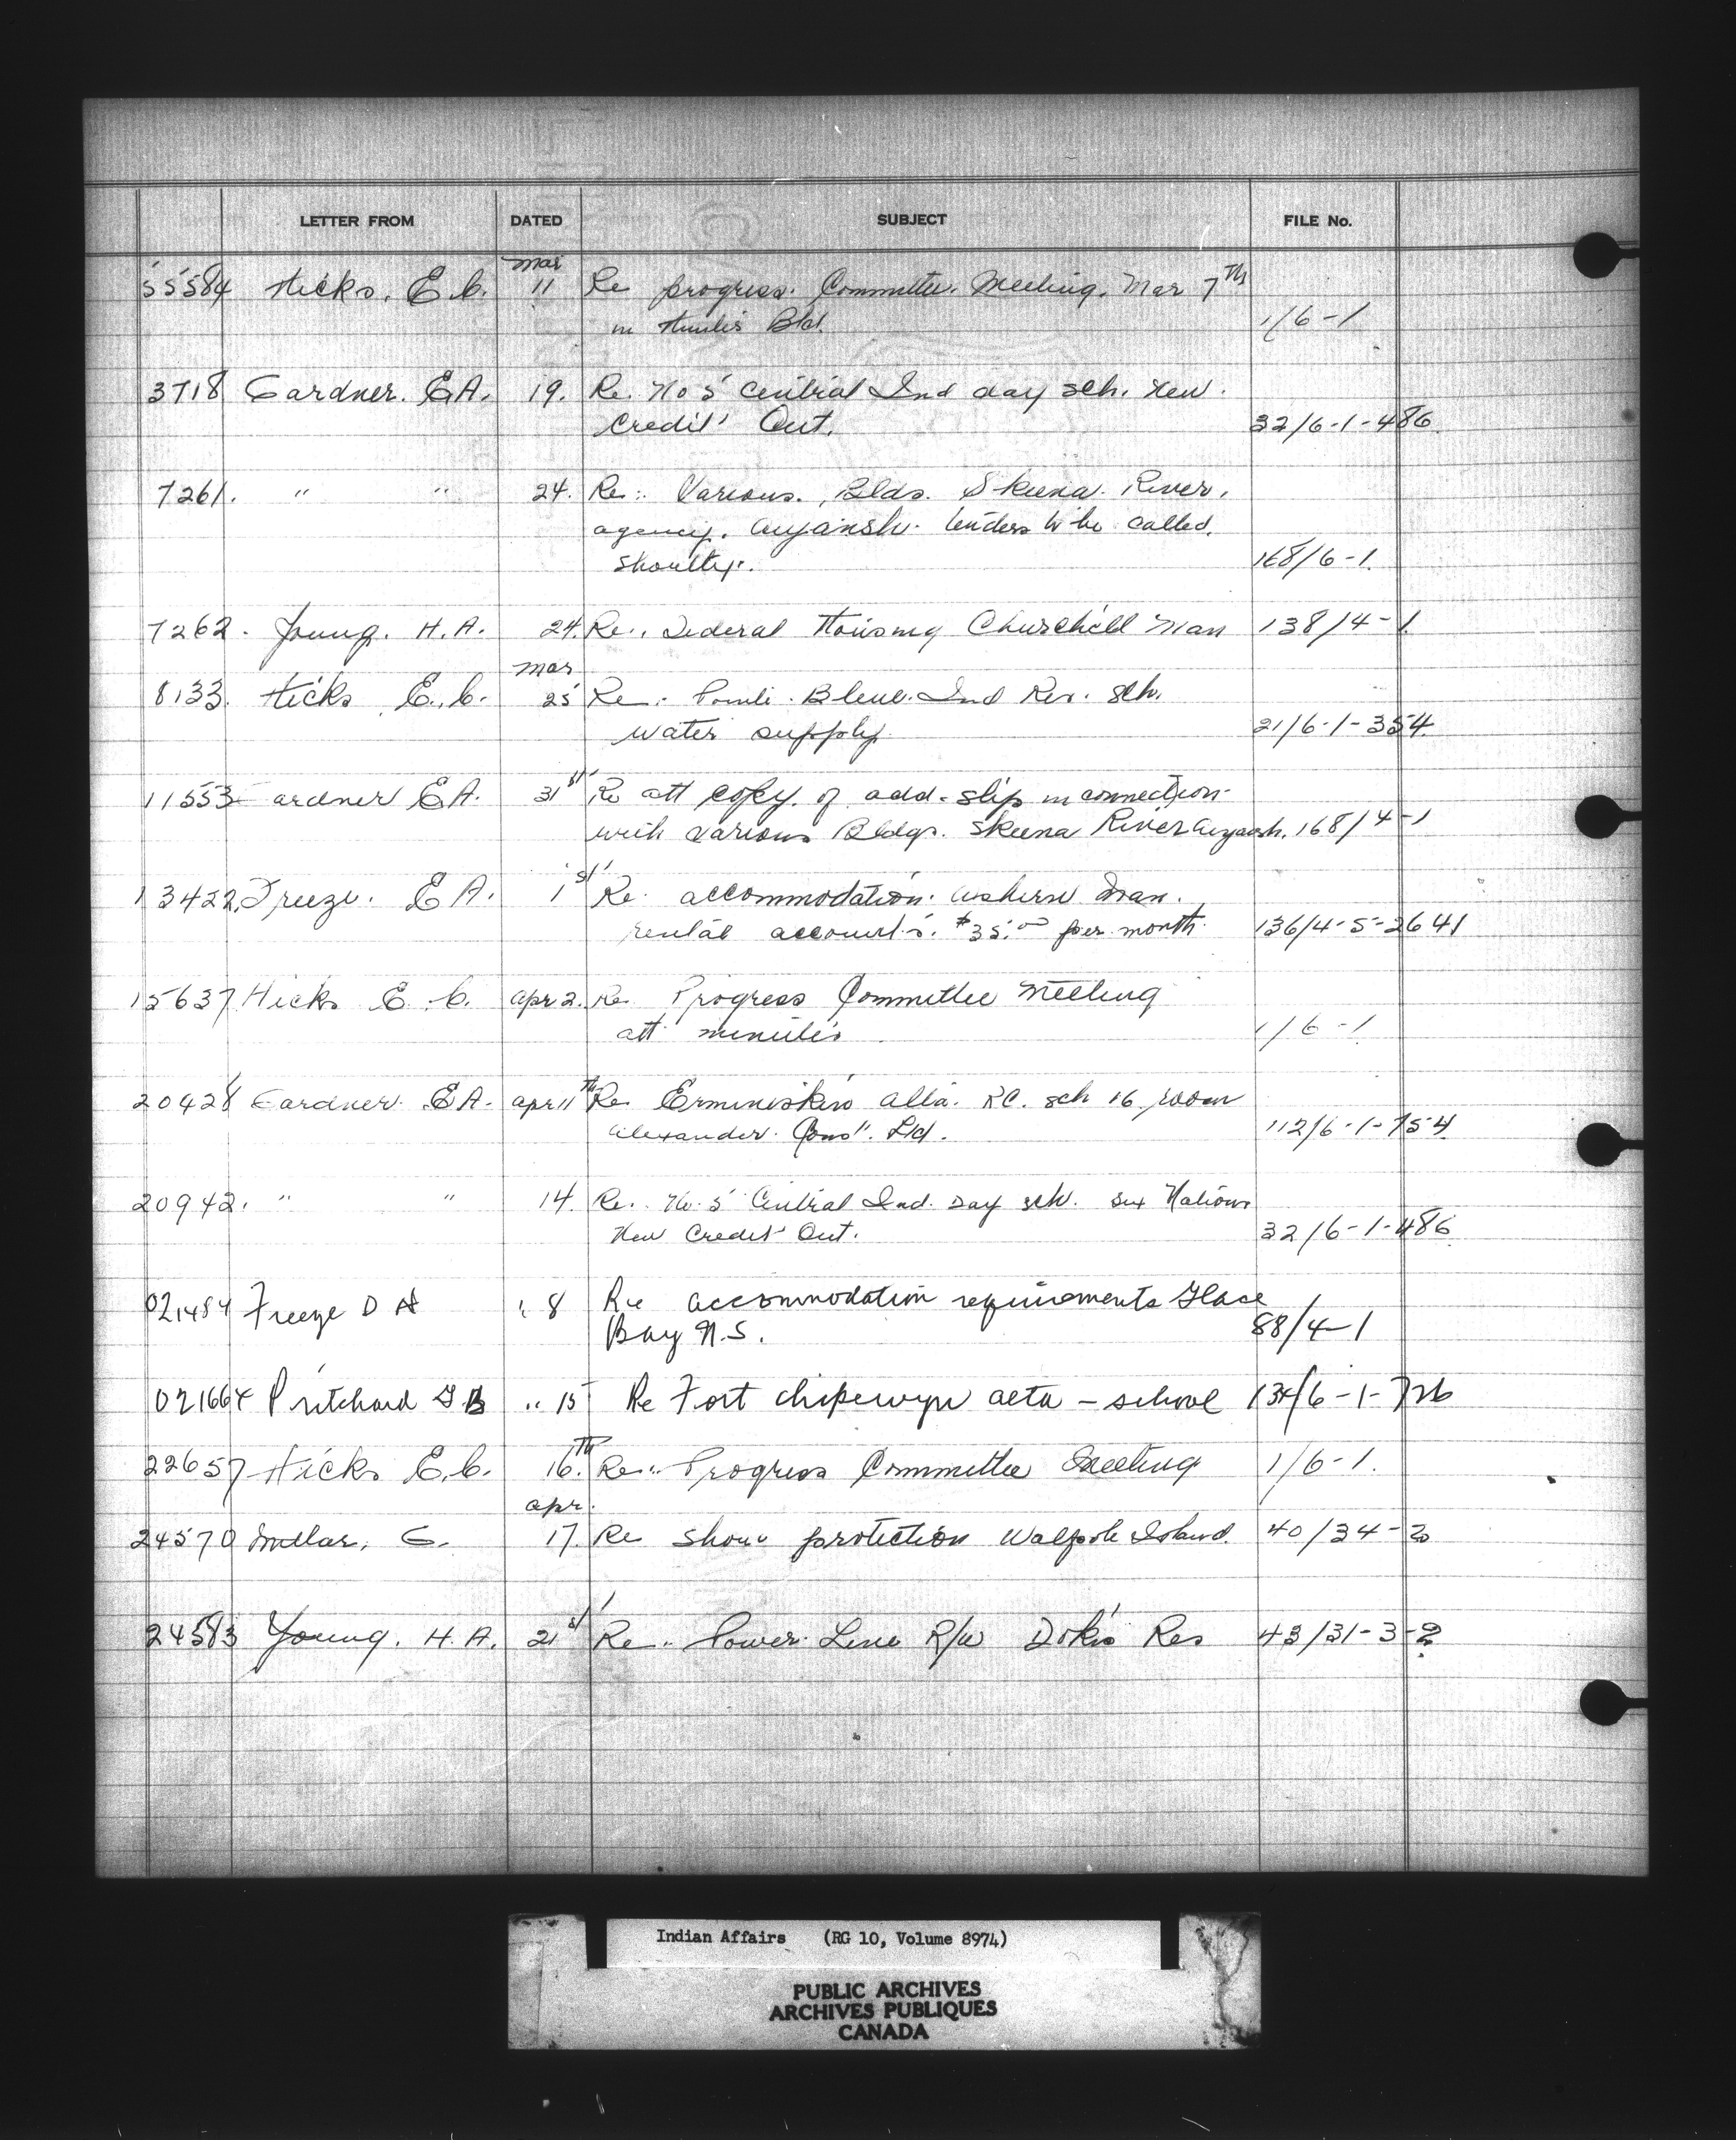 LETTER FROM DATED SUBJECT FILE No.
Mar
55584 Hicks. E.C. 11 Re progress. Committee. Meeting. Mar 7th
in Bld. 1/6-1
3718 Gardner. E.A. 19. Re. No 5 Central Ind day sch. New.
Credit Ont. 32/6-1-486
7261. " " 24. Re: Various. Blds. Skeena. River,
agency. Aiyansh. tenders to be called.
shortly. 168/6-1.
7262. Young. H.A. 24. Re. Federal Housing Churchill Man 138/14-1
Mar
8133. Hicks E.C. 25 Re. Bleue. Ind Res. Sch.
water supply. 21/6-1-354
11553 Gardner E.A. 31st Re att copy. of add. slip in connection
with various Bldgs. Skeena River Aiyansh. 168/14-1
13422. Freeze. E A. 1st Re. accommodation. Ashern Man.
rental accounts. $35.00 per month. 136/4-5-2641
15637 Hicks E.C. Apr 2. Re. Progress Committee Meeting
att minutes 1/6-1
20428 Gardner. E.A. Apr 11th Re Ermineskin Alta. RC. sch 16 room
Alexander. Const. Ltd. 112/6-1-754
20942. " " 14. Re. No. 5 Central Ind. Day sch. Six Nations
New Credit Ont. 32/6-1-486
021484 Freeze D A " 8 Re accommodation requirements Glace
Bay N.S. 88/4-1
021664 Pritchard G B " 15 Re Fort chipewyn alta - school 134/6-1-726
22657 Hicks E.C. 16th. Re: Progress Committee Meeting 1/6-1.
Apr.
24570 Millar, G. 17. Re Shore protection Walpole Island. 40/34-2
24583 Young. H.A. 21st Re. Power Line R/W Dokis Res 43/31-3-2
Indian Affairs (RG 10, Volume 8974)
PUBLIC ARCHIVES
ARCHIVES PUBLIQUES
CANADA